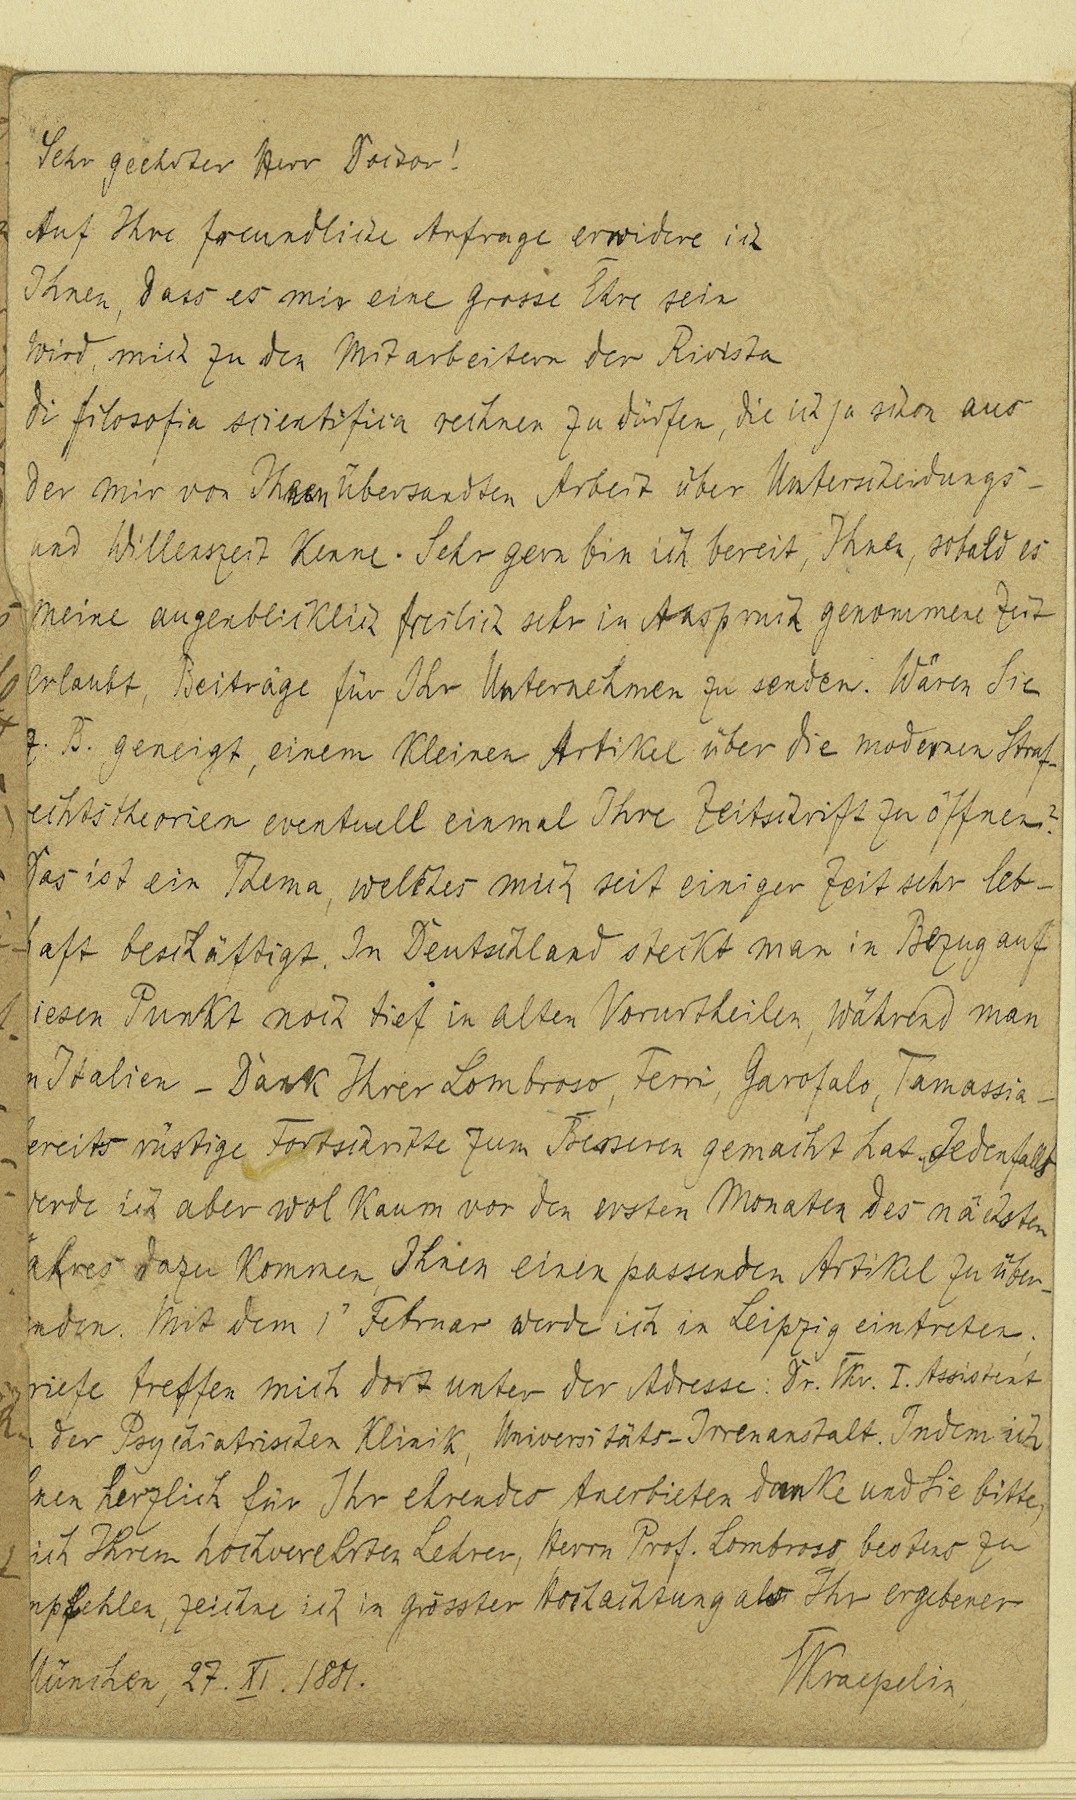 Sehr geehrter Herr Doctor!
Auf Ihre freundliche Anfrage erwidere ich
Ihnen, dass es mir eine grosse Ehre sein
wird, mich zu den Mitarbeitern der Rivista
di filosofia scientifica rechnen zu dürfen, die ich ja schon aus
der mir von Ihnen übersandten Arbeit über Unterscheidungs-
und Willenszeit kenne. Sehr gern bin ich bereit, Ihnen, sobald es
meine augenblicklich freilich sehr in Anspruch genommene Zeit
erlaubt, Beiträge für Ihr Unternehmen zu senden. Wären Sie
z. B. geneigt, einem kleinen Artikel über die modernen Straf-
echtstheorien eventuell einmal Ihre Zeitschrift zu öffnen?
Das ist ein Thema, welches mich seit einiger Zeit sehr leb-
haft beschäftigt. In Deutschland steckt man in Bezug auf
iesen Punkt noch tief in alten Vorurtheilen, während man
n Italien – Dank Ihrer Lombroso, Ferri, Garofalo, Tamassia –
ereits rüstige Fortschritte zum Besseren gemacht hat. Jedenfalls
erde ich aber wol kaum vor den ersten Monaten des nächsten
ahres dazu kommen, Ihnen einen passenden Artikel zu über-
nden. Mit dem 1. Februar werde ich in Leipzig eintreten.
riefe treffen mich dort unter der Adresse: Dr. Kr. I. Assistent
der Psychiatrischen Klinik, Universitäts-Irrenanstalt. Indem ich
hnen herzlich für Ihr ehrendes Anerbieten danke und Sie bitte,
ich Ihrem hochverehrten Lehrer, Herrn Prof. Lombroso bestens zu
mpfehlen, zeichne ich in grösster Hochachtung als Ihr ergebener
München, 27. XI. 1881.
EKraepelin